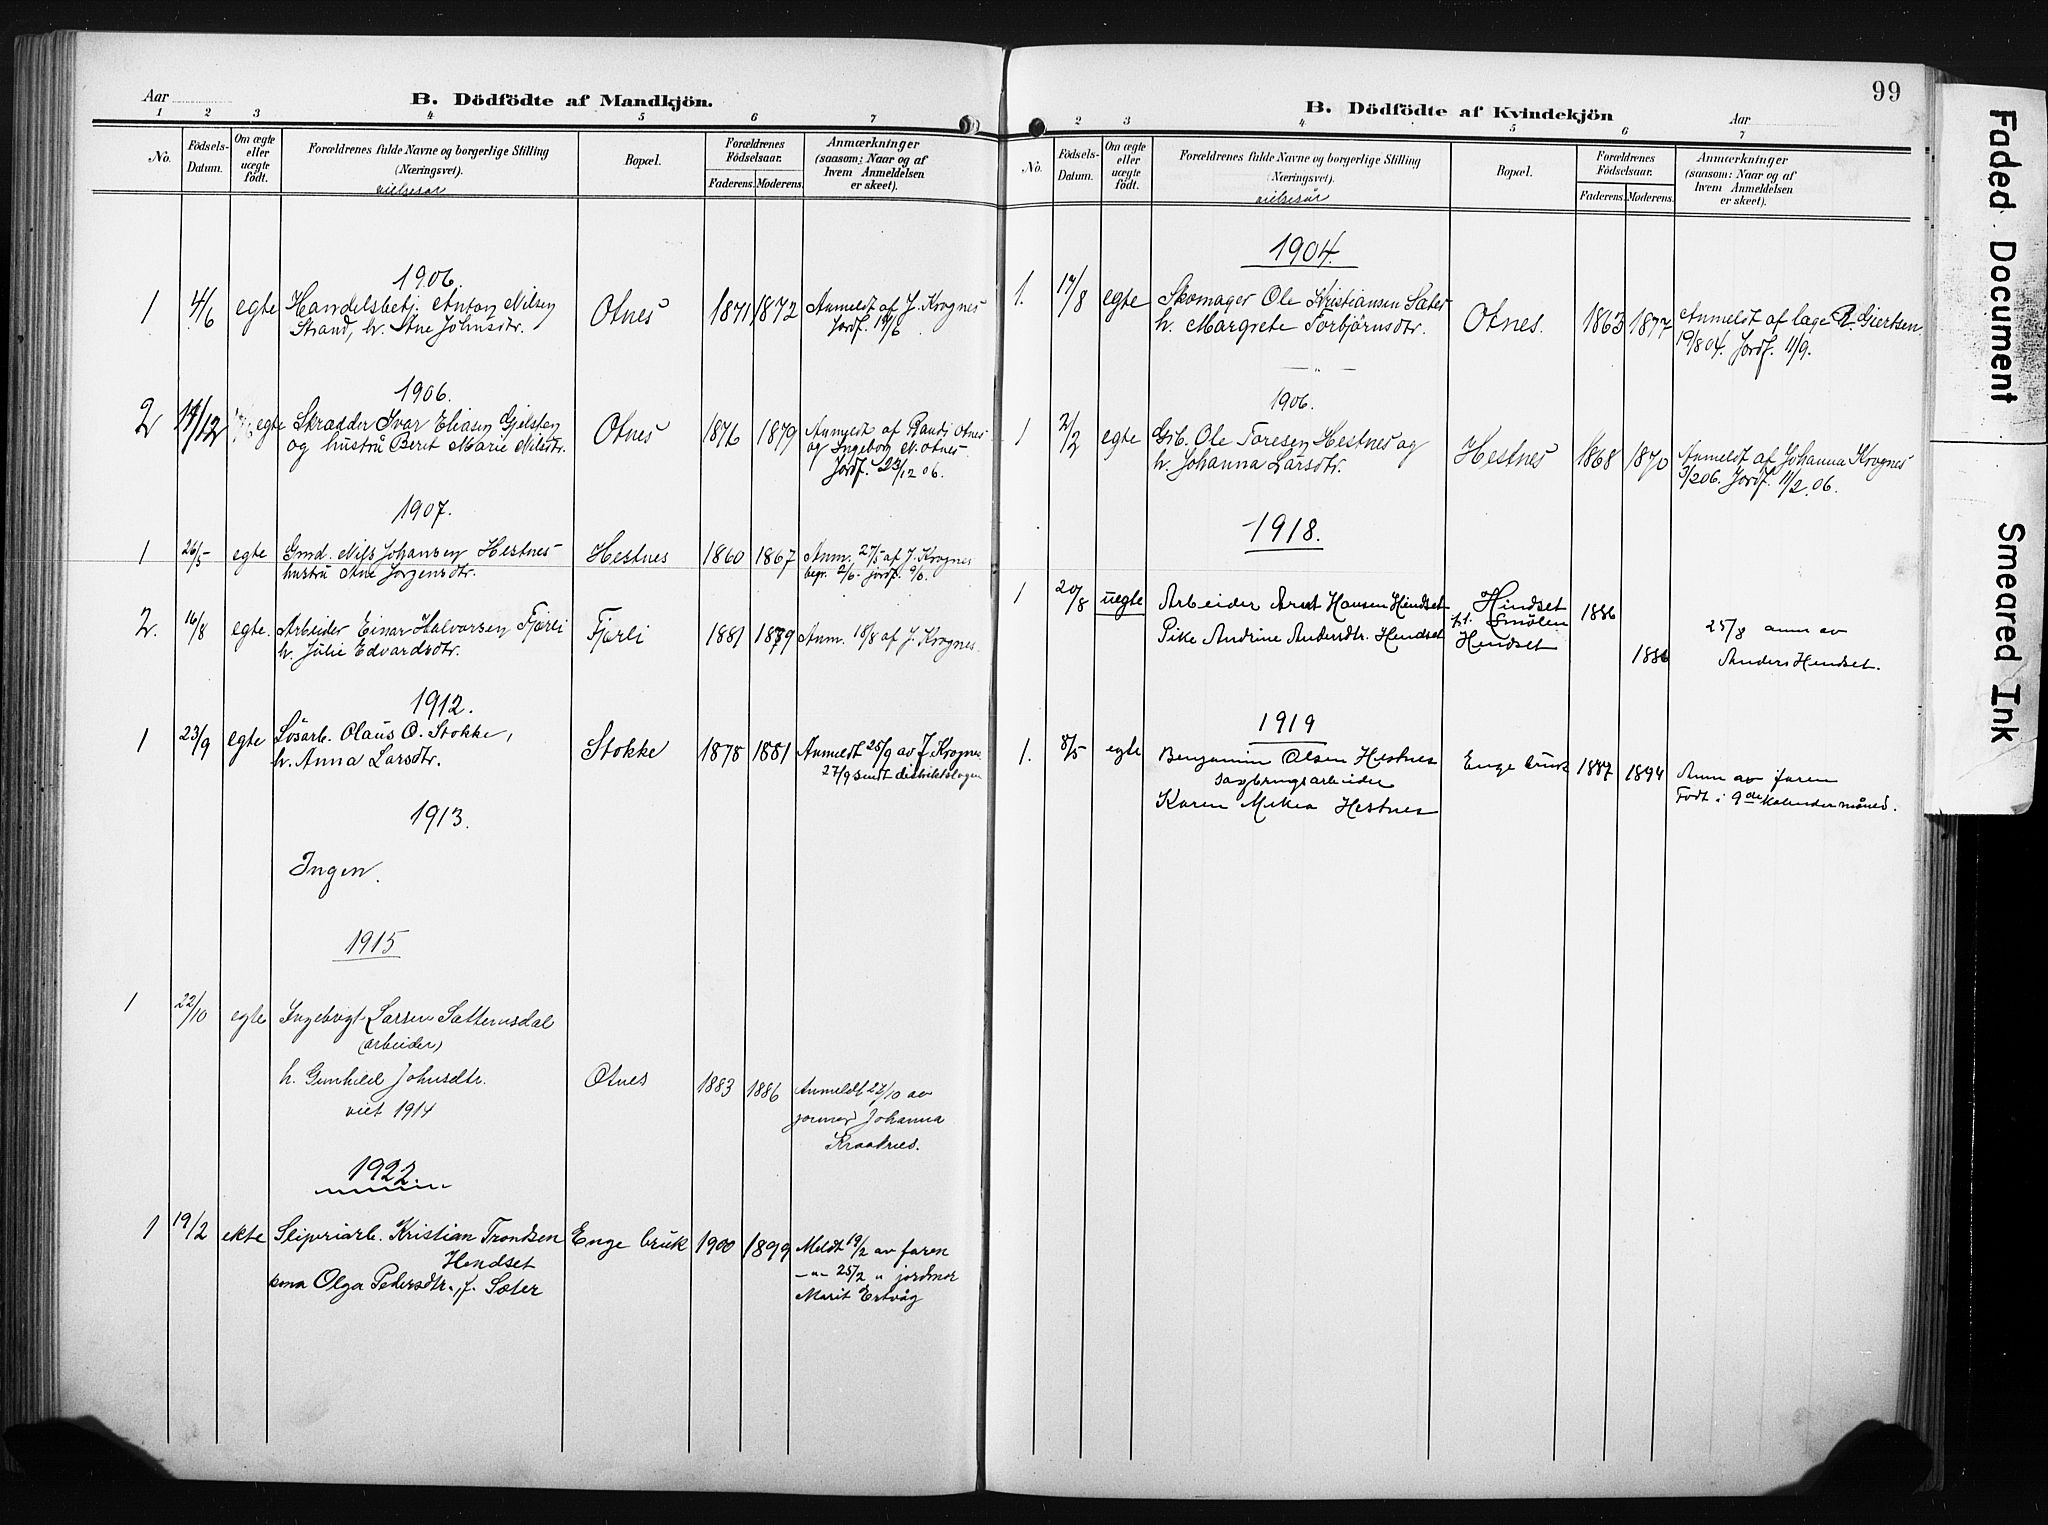 Aar
B. Dödfödte af Mandkjön.
1 2 3 4 5 6 7
No.
Födsels-
Datum.
Om ægte
eller
uægte
födt.
Forældrenes fulde Navne og borgerlige Stilling
(Næringsvei).
vielsesår
Bopæl.
Forældrenes
Födselsaar.
Faderens. Moderens.
Anmærkninger
(saasom: Naar og af
hvem Anmeldelsen
er skeet).
1906.
1 4/6 egte Handelsbetj. Anton Nilsen Otnes 1871 1872 Anmeldt af J. Krognes
Strand, h. Ane Johnsdtr. Jordf. 19/6
1906.
2 17/12 egte Skrædder Ivar Eliasen Gjelsten Otnes 1876 1879 Anmeldt af Randi Otnes
og hustru Beret Marie Nilsdtr. og Ingeborg N. Otnes.
Jordf. 23/12 06.
1907.
1 26/5 egte Gmd. Nils Johansen Hestnes Hestnes 1860 1867 Anm. 27/5 af J. Krognes
hustru Ane Jørgensdtr. begr. 2/6 jordf. 9/6.
2. 16/8 egte. Arbeider Einar Halvorsen Fjærli Fjærli 1881 1879 Anm. 18/8 af J. Krognes.
h. Julie Edvardsdtr.
1912.
1 23/9 egte Løsarb. Olaus O. Stokke, Stokke 1878 1881 Anmeldt 25/9 av J. Krognes
h. Anna Larsdtr. 27/9 sendt distriktslægen
1913.
Ingen.
1915
1 22/10 egte Ingebrigt Larsen Sætternesdal
(arbeider)
h. Gunhild Johnsdtr. Otnes 1883 1886 Anmeldt 27/10 av
viet 1914 jormor Johanna
Kraaknes.
1922.
1 19/2 ekte Sliperiarb. Kristian Trondsen Enge bruk 1900 1899 Meldt 19/2 av faren
Hendset -"- 25/2 " jordmor
kona Olga Pedersdtr., f. Sæter Marit Ertvåg
99
B. Dödfödte af Kvindekjön
Aar
2 3 4 5 6 7
No.
Födsels-
Datum.
Om ægte
eller
uægte
födt.
Forældrenes fulde Navne og borgerlige Stilling
(Næringsvei).
vielsesår
Bopæl.
Forældrenes
Födselsaar.
Faderens. Moderens.
Anmærkninger
(saasom: Naar og af
hvem Anmeldelsen
er skeet).
1904.
1. 17/8 egte Skomager Ole Kristiansen Sæter Otnes. 1863 1877 Anmeldt af læge R. Giertsen
h. Margrete Torbjørnsdtr. 19/8 04. Jordf. 11/9.
1906.
1 2/2 egte Grb. Ole Toresen Hestnes og Hestnes 1868 1870 Anmeldt af Johanna Krognes
h. Johanna Larsdtr. 3/2 06. Jordf. 11/2.06.
1918.
1 20/8 uegte Arbeider Arnt Hansen Hendset Hindset 1886
p.t. Smølen
Pike Andrine Andersdtr. Hendset Hendset 1886 25/8 anm av
Anders Hendset.
1919
1. 8/5 egte Benjamin Olsen Hestnes Enge bruk 1887 1894 Anm av faren
sagbrugsarbeider Født i 9de kalendermåned.
Karen Mekia Hestnes
Faded Document
Smeared Ink